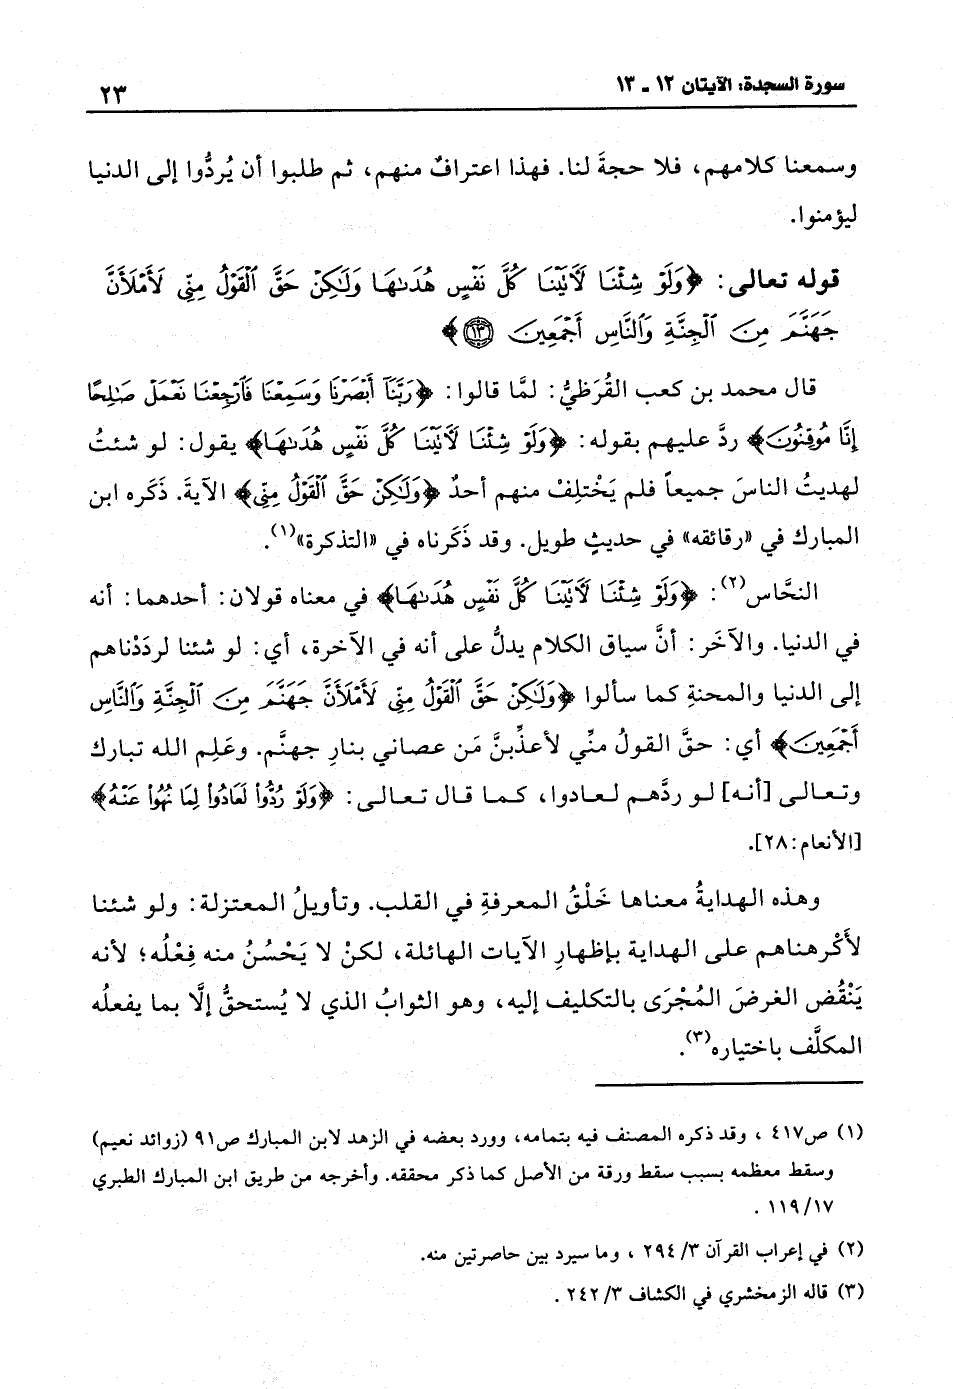 سورة السجدة: الآيتان ١٢ ـ ١٣
٢٣
وسمعنا كلامهم، فلا حجةَ لنا. فهذا اعترافٌ منهم، ثم طلبوا أن يُردُّوا إلى الدنيا
ليؤمنوا.
قوله تعالى: ﴿وَلَوْ شِئْنَا لَآتَيْنَا كُلَّ نَفْسٍ هُدَىٰهَا وَلَٰكِنْ حَقَّ ٱلْقَوْلُ مِنِّى لَأَمْلَأَنَّ
جَهَنَّمَ مِنَ ٱلْجِنَّةِ وَٱلنَّاسِ أَجْمَعِينَ ۝١٣﴾
قال محمد بن كعب القُرَظيُّ: لمَّا قالوا: ﴿رَبَّنَآ أَبْصَرْنَا وَسَمِعْنَا فَٱرْجِعْنَا نَعْمَلْ صَٰلِحًا
إِنَّا مُوقِنُونَ﴾ ردَّ عليهم بقوله: ﴿وَلَوْ شِئْنَا لَآتَيْنَا كُلَّ نَفْسٍ هُدَىٰهَا﴾ يقول: لو شئتُ
لهديتُ الناسَ جميعاً فلم يَختلِفْ منهم أحدٌ ﴿وَلَٰكِنْ حَقَّ ٱلْقَوْلُ مِنِّى﴾ الآيةَ. ذَكَره ابن
المبارك في «رقائقه» في حديثٍ طويل. وقد ذَكَرناه في «التذكرة»(١).
النحَّاس(٢): ﴿وَلَوْ شِئْنَا لَآتَيْنَا كُلَّ نَفْسٍ هُدَىٰهَا﴾ في معناه قولان: أحدهما: أنه
في الدنيا. والآخَر: أنَّ سياق الكلام يدلُّ على أنه في الآخرة، أي: لو شئنا لردَدْناهم
إلى الدنيا والمحنةِ كما سألوا ﴿وَلَٰكِنْ حَقَّ ٱلْقَوْلُ مِنِّى لَأَمْلَأَنَّ جَهَنَّمَ مِنَ ٱلْجِنَّةِ وَٱلنَّاسِ
أَجْمَعِينَ﴾ أي: حقَّ القولُ منِّي لأعذِّبنَّ مَن عصاني بنارِ جهنَّم. وعَلِم الله تبارك
وتعالى [أنه] لو ردَّهم لعادوا، كما قال تعالى: ﴿وَلَوْ رُدُّوا۟ لَعَادُوا۟ لِمَا نُهُوا۟ عَنْهُ﴾
[الأنعام: ٢٨].
وهذه الهدايةُ معناها خَلْقُ المعرفةِ في القلب. وتأويلُ المعتزلة: ولو شئنا
لأَكْرهناهم على الهداية بإظهارِ الآيات الهائلة، لكنْ لا يَحْسُنُ منه فِعْلُه؛ لأنه
يَنْقُض الغرضَ المُجْرَى بالتكليف إليه، وهو الثوابُ الذي لا يُستحقُّ إلَّا بما يفعلُه
المكلَّف باختياره(٣).
(١) ص٤١٧ ، وقد ذكره المصنف فيه بتمامه، وورد بعضه في الزهد لابن المبارك ص٩١ (زوائد نعيم)
وسقط معظمه بسبب سقط ورقة من الأصل كما ذكر محققه. وأخرجه من طريق ابن المبارك الطبري
١١٩/١٧ .
(٢) في إعراب القرآن ٢٩٤/٣ ، وما سيرد بين حاصرتين منه.
(٣) قاله الزمخشري في الكشاف ٢٤٢/٣ .